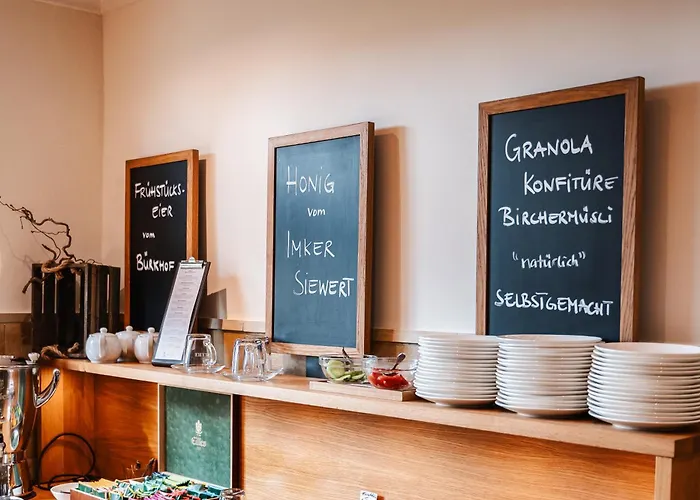 FRÜHSTÜCKS-
EIER
vom
BÜRKHOF
HONIG
vom
IMKER
SIEWERT
GRANOLA
KONFITÜRE
BIRCHERMÜSLI
"natürlich"
SELBSTGEMACHT
Eilles